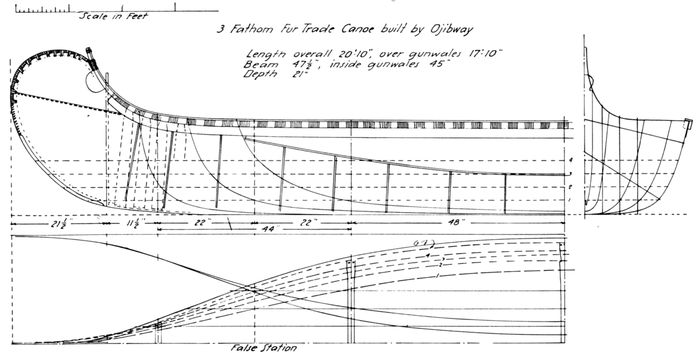 Scale in Feet
3 Fathom Fur Trade Canoe built by Ojibway
Length overall 20'10", over gunwales 17'10"
Beam 47½", inside gunwales 45"
Depth 21"
4
3
2
21½"
11½"
22"
22"
48"
44"
4
3
2
1
False Station